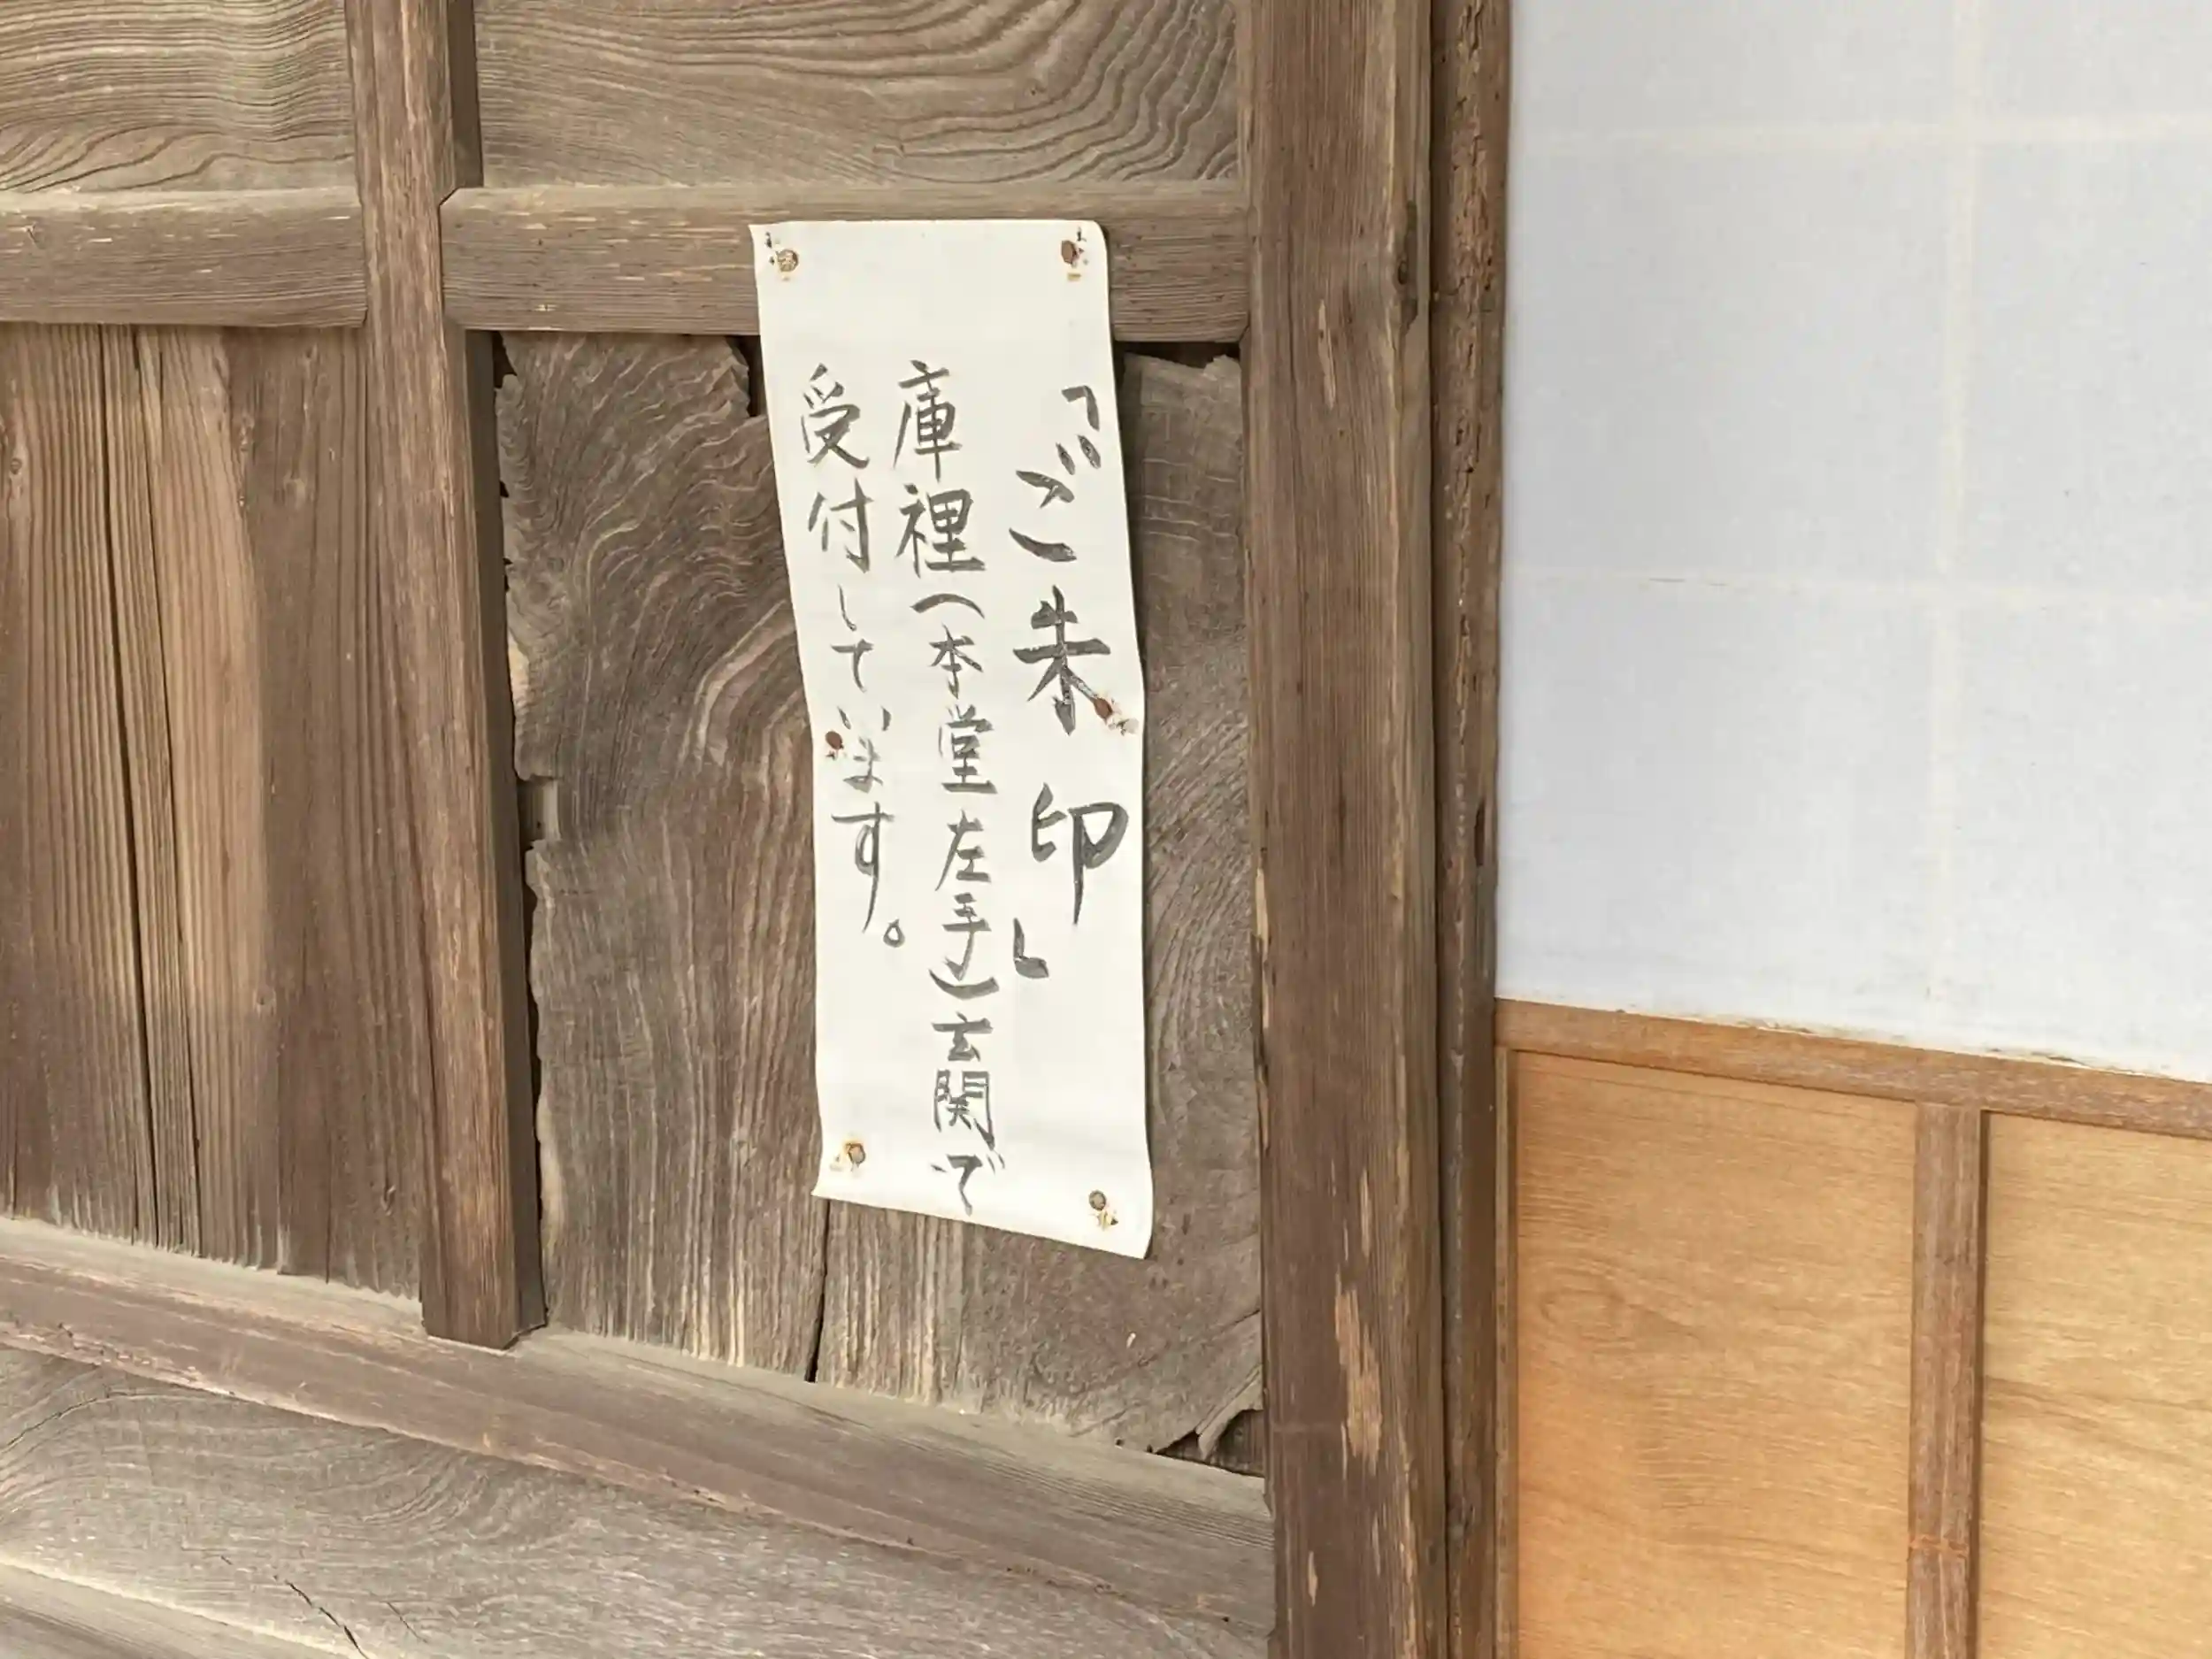 「ご朱印」
庫裡(本堂左手)玄関で
受付しています。